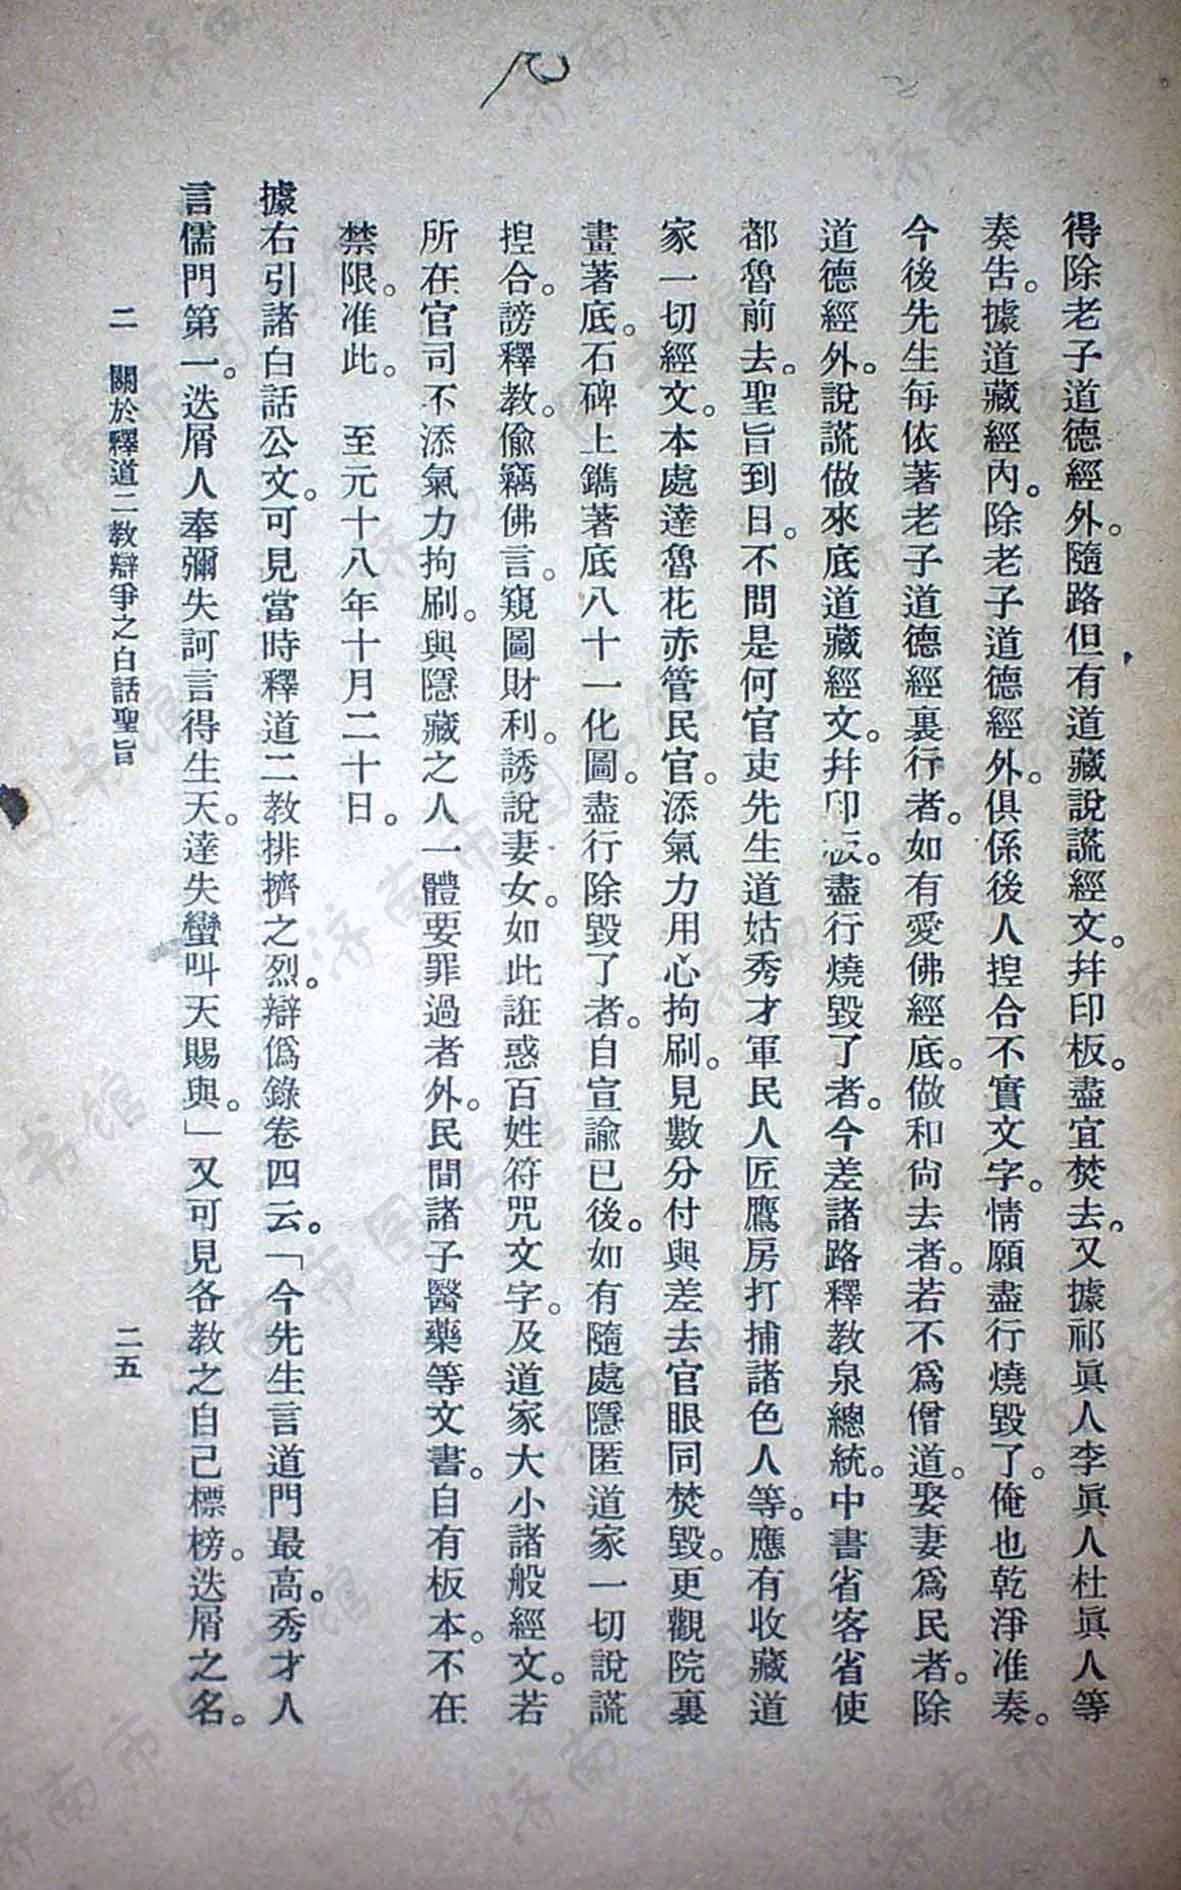 得除老子道德經外。隨路但有道藏說謊經文。幷印板。盡宜焚去。又據祁眞人李眞人杜眞人等
奏告。據道藏經內。除老子道德經外。俱係後人揑合不實文字。情願盡行燒毀了。俺也乾淨准奏。
今後先生每依著老子道德經裏行者。如有愛佛經底。做和尙去者。若不爲僧道。娶妻爲民者。除
道德經外。說謊做來底道藏經文。幷印板。盡行燒毀了者。今差諸路釋教泉總統。中書省客省使
都魯前去。聖旨到日。不問是何官吏先生道姑秀才軍民人匠鷹房打捕諸色人等。應有收藏道
家一切經文。本處達魯花赤管民官。添氣力用心拘刷。見數分付與差去官眼同焚毀。更觀院裏
畫著底。石碑上鐫著底八十一化圖。盡行除毀了者。自宣諭已後。如有隨處隱匿道家一切說謊
揑合。謗釋教。偷竊佛言。窺圖財利。誘說妻女。如此誑惑百姓符咒文字。及道家大小諸般經文。若
所在官司不添氣力拘刷。與隱藏之人一體要罪過者外。民間諸子醫藥等文書。自有板本。不在
禁限。准此。　至元十八年十月二十日。
據右引諸白話公文。可見當時釋道二教排擠之烈。辯僞錄卷四云。「今先生言道門最高。秀才人
言儒門第一。迭屑人奉彌失訶言得生天。達失蠻叫天賜與。」又可見各教之自己標榜。迭屑之名。
二　關於釋道二教辯爭之白話聖旨
二五
济南市图书馆